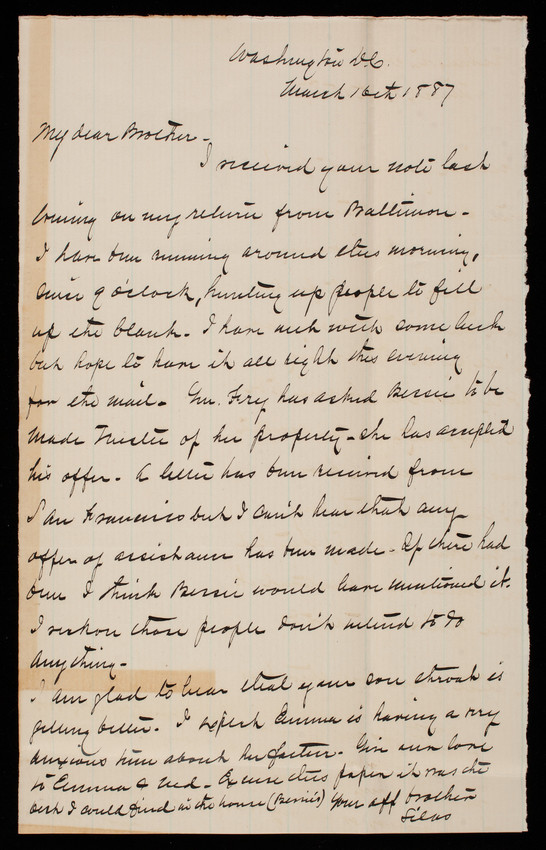 Washington D.C.
March 16th 1887
My dear Brother -
I received your note last
evening on my return from Baltimore -
I have been running around this morning,
since 9 o'clock, hunting up people to fill
up the blank - I have met with some luck
but hope to have it all right this evening
for the mail - Gen. Fry has asked Bessie to be
made Trustee of her property - she has accepted
his offer - A letter has been received from
San Francisco but I can't hear that any
offer of assistance has been made - If there had
been I think Bessie would have mentioned it.
I reckon those people don't intend to do
anything -
I am glad to hear that your sore throat is
getting better - I expect Emma is having a very
anxious time about her father - Give our love
to Emma & Ned - Excuse this paper it was the
best I could find in the house (Bernie's) Your aff brother
Silas